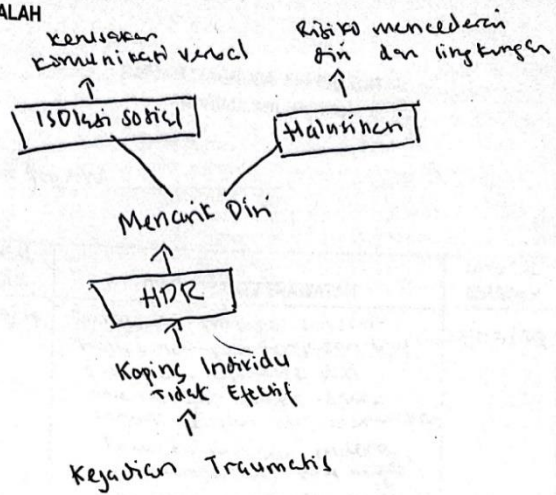 ALAH
Kerusakan
Komunikasi Verbal
Risiko mencederai
diri dan lingkungan
Isolasi Sosial
Halusinasi
Menarik Diri
HDR
Koping Individu
Tidak Efektif
Kejadian Traumatis